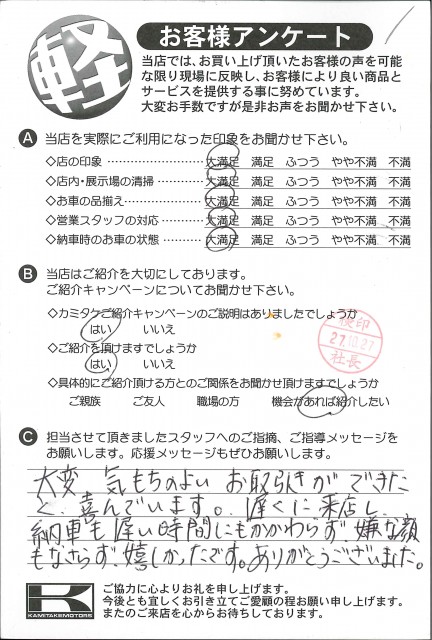 軽
お客様アンケート
当店では、お買い上げ頂いたお客様の声を可能
な限り現場に反映し、お客様により良い商品と
サービスを提供する事に努めています。
大変お手数ですが是非お声をお聞かせ下さい。
A 当店を実際にご利用になった印象をお聞かせ下さい。
◇店の印象 大満足 満足 ふつう やや不満 不満
◇店内・展示場の清掃 大満足 満足 ふつう やや不満 不満
◇お車の品揃え 大満足 満足 ふつう やや不満 不満
◇営業スタッフの対応 大満足 満足 ふつう やや不満 不満
◇納車時のお車の状態 大満足 満足 ふつう やや不満 不満
B 当店はご紹介を大切にしております。
ご紹介キャンペーンについてお聞かせ下さい。
◇カミタケご紹介キャンペーンのご説明はありましたでしょうか
はい いいえ
検印
27.10.27
社長
◇ご紹介を頂けますでしょうか
はい いいえ
◇具体的にご紹介頂ける方とのご関係をお聞かせ頂けますでしょうか
ご親族 ご友人 職場の方 機会があれば紹介したい
C 担当させて頂きましたスタッフへのご指摘、ご指導メッセージを
お願いします。応援メッセージもぜひお願いします。
大変、気もちのよい お取引きができた
と、喜んでいます。遅くに来店し、
納車も遅い時間にもかかわらず、嫌な顔
もなさらず、嬉しかったです。ありがとうございました。
K
KAMITAKEMOTORS
ご協力に心よりお礼を申し上げます。
今後とも宜しくお引き立てご愛顧の程お願い申し上げます。
またのご来店を心からお待ちしております。